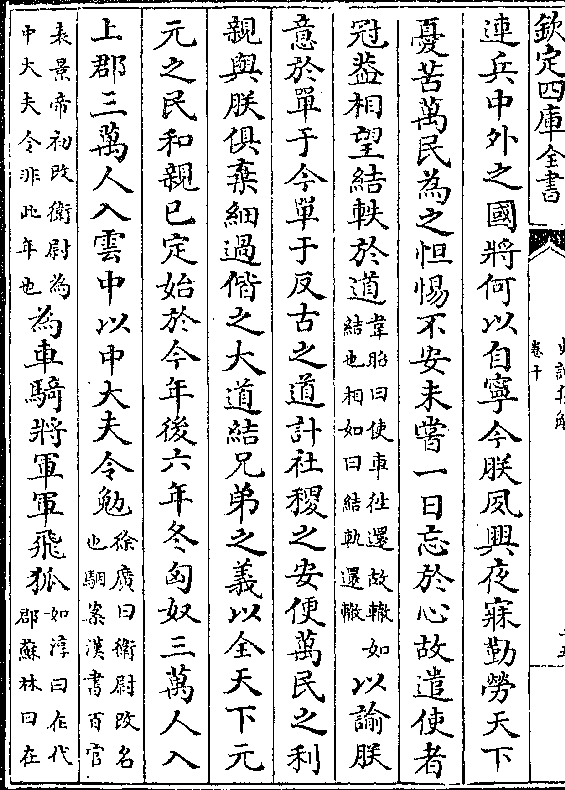 欽定四庫全書
卷十
連兵中外之國將何以自寧今朕夙興夜寐勤勞天下
憂苦萬民為之怛惕不安未嘗一日忘於心故遣使者
冠葢相望結軼於道韋昭曰使車往還故轍如
結也相如曰結軌還轍以諭朕
意於單于今單于反古之道計社稷之安便萬民之利
親與朕俱棄細過偕之大道結兄弟之義以全天下元
元之民和親已定始於今年後六年冬匈奴三萬人入
上郡三萬人入雲中以中大夫令勉徐廣曰衛尉改名
也駰案漢書百官
表景帝初改衛尉為
中大夫令非此年也為車騎將軍軍飛狐如淳曰在代
郡蘇林曰在